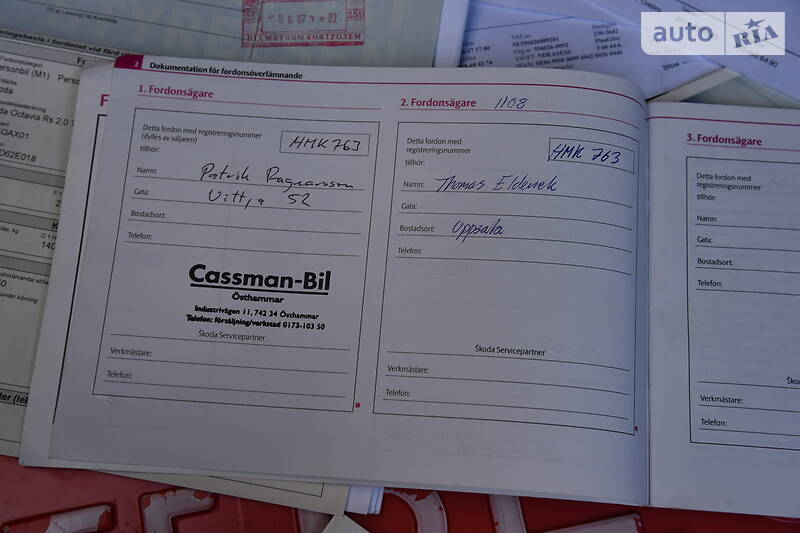 auto RIA
(1) Ev Leasing / ev Kreditköp
259
МИТНИМ КОНТРОЛЕМ
Personbil (M1)
Octavia Rs 2,0 T
D62E018
2 Dokumentation för fordonsöverlämnande
1. Fordonsägare
Detta fordon med registreringsnummer
(ifylles av säljaren)
tillhör:
HMK 763
Namn: Patrik Ragnarsson
Gata: 52
Bostadsort:
Telefon:
Cassman-Bil
Östhammar
Industrivägen 11, 742 34 Östhammar
Telefon: försäljning/verkstad 0173-103 50
Škoda Servicepartner
Verkmästare:
Telefon:
2. Fordonsägare 1108
Detta fordon med
registreringsnummer
tillhör:
HMK 763
Namn: Thomas
Gata:
Bostadsort: Uppsala
Telefon:
Škoda Servicepartner
Verkmästare:
Telefon:
3. Fordonsägare
Detta fordon med
registreringsnummer
tillhör:
Namn:
Gata:
Bostadsort:
Telefon:
Verkmästare:
Telefon: